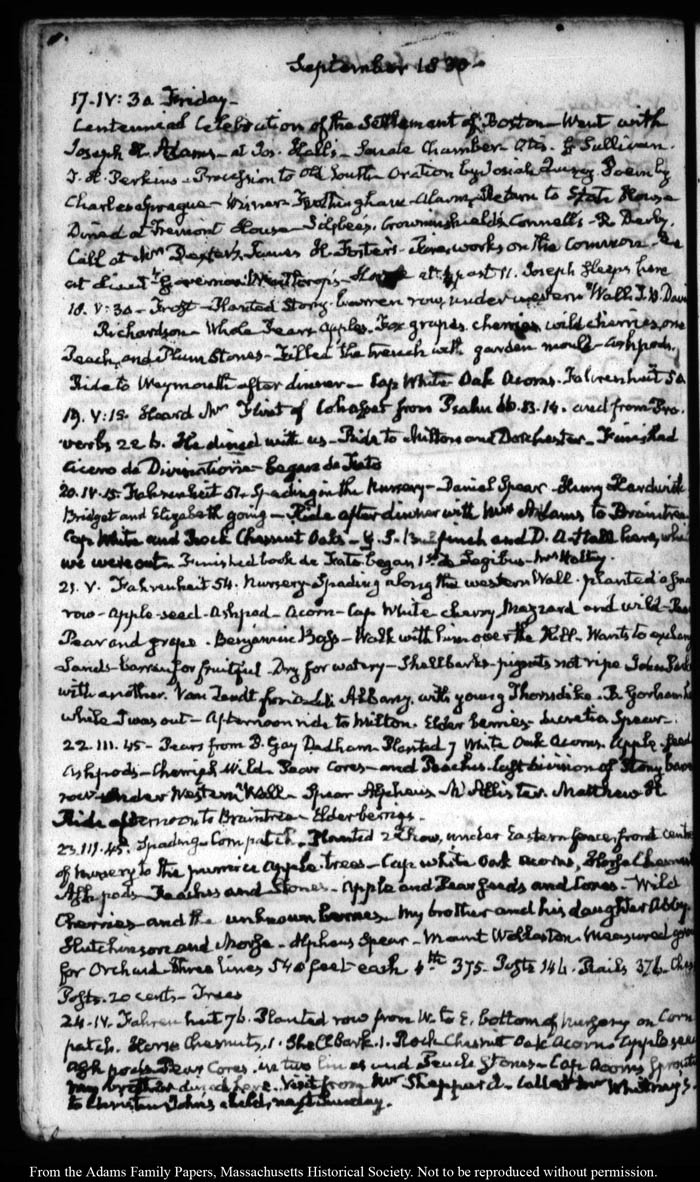 September 1830.
17. IV: 30 Friday—
Centennial Celebration of the Settlement of Boston— Went with
Joseph H. Adams— at Jos. Hall's— Senate Chamber Otis. G Sullivan.
T. H. Perkins— Procession to Old South— Oration by Josiah Quincy Poem by
Charles Sprague— Dinner— Frothingham— Alarm, Return to State House
Dined at Tremont House— Silsbee's, Crowninshield's Connell's— R Derby.
Call at Mrs Dexter's, James H. Foster's— Fireworks on the Common—
at Lieutt Governor Winthrop's— Home at past 11. Joseph sleeps here
18. V: 30— Frost— Planted Stony barren row under western Wall. I. P. Davis
Richardson— Whole Pears Apples. Fox grapes, cherries, wild cherries, one
Peach, and Plum Stones— Filled the trench with garden mould— Ashpods,
Ride to Weymouth after dinner— Cap White Oak Acorns. Fahrenheit 50
19. V: 15. Heard Mr Flint of Cohasset from Psalm 66. 13. 14. and from Pro.
verbs 22 6. He dined with us— Ride to Milton and Dorchester— Finished
Cicero de Divinatione— began de Fato
20. IV. 15. Fahrenheit 51. Spading in the Nursery— Daniel Spear— Henry Hardwick
Bridget and Elizabeth going— Ride after dinner with Mrs Adams to Braintree
Cap White and Rock Chesnut Oaks— G. S. Bulfinch and D. A. Hall here, while
we were out— Finished book de Fato. began 1st de Legibus— Mrs
21. V. Fahrenheit 54. Nursery— Spading along the western Wall— planted a
row— Apple-seed— Ashpod— Acorn— Cap White cherry Mazzard and wild—
Pear and grape. Benjamin Bass— Walk with him over the Hill— Wants to exchange
Lands— barren for fruitful— Dry for watery— Shellbarks— pignuts not ripe John
with another. Van Zandt from Albany, with young Thorndike. B. Gorham here
while I was out— Afternoon ride to Milton. Elder berries— Lucretia Spear—
22. III. 45— Pears from B. Gay Dedham— Planted 7 White Oak Acorns. Apple-seed
Ashpods— Cherries Wild— Pear Cores— and Peaches— Left division of Stony barren
row under Western Wall— Spear Alpheus— Matthew H
Ride afternoon to Braintree— Elderberries—
23. III. 45. Spading— Corn patch. Planted 2d row, under Eastern fence, front centre
of nursery to the Apple trees— Cap white Oak Acorns, Horse Chesnut
Ash pods— Peaches and Stones— Apple and Pear Seeds and Cones— Wild
Cherries— and the unknown berries— My brother and his daughter Abby.
Hutchinson and Morse— Alpheus Spear— Mount Wollaston— Measured
for Orchard— three lines 540 feet each, 375— Posts 146. Rails 376—
Posts— 20 cents— Trees
24. IV. Fahrenheit 76. Planted row from W. to E. bottom of Nursery on Corn
patch. Horse Chesnuts, 1. Shellbark. 1. Rock Chesnut Oak Acorn— Apple seeds
ash pods— Pear Cores— in two lines and Peach Stones— Cap Acorns sprouts
my brother dined here. Visit from Mr Sheppard— call at Mr Whitney's.
to Christen John's child, next Sunday.
From the Adams Family Papers, Massachusetts Historical Society. Not to be reproduced without permission.